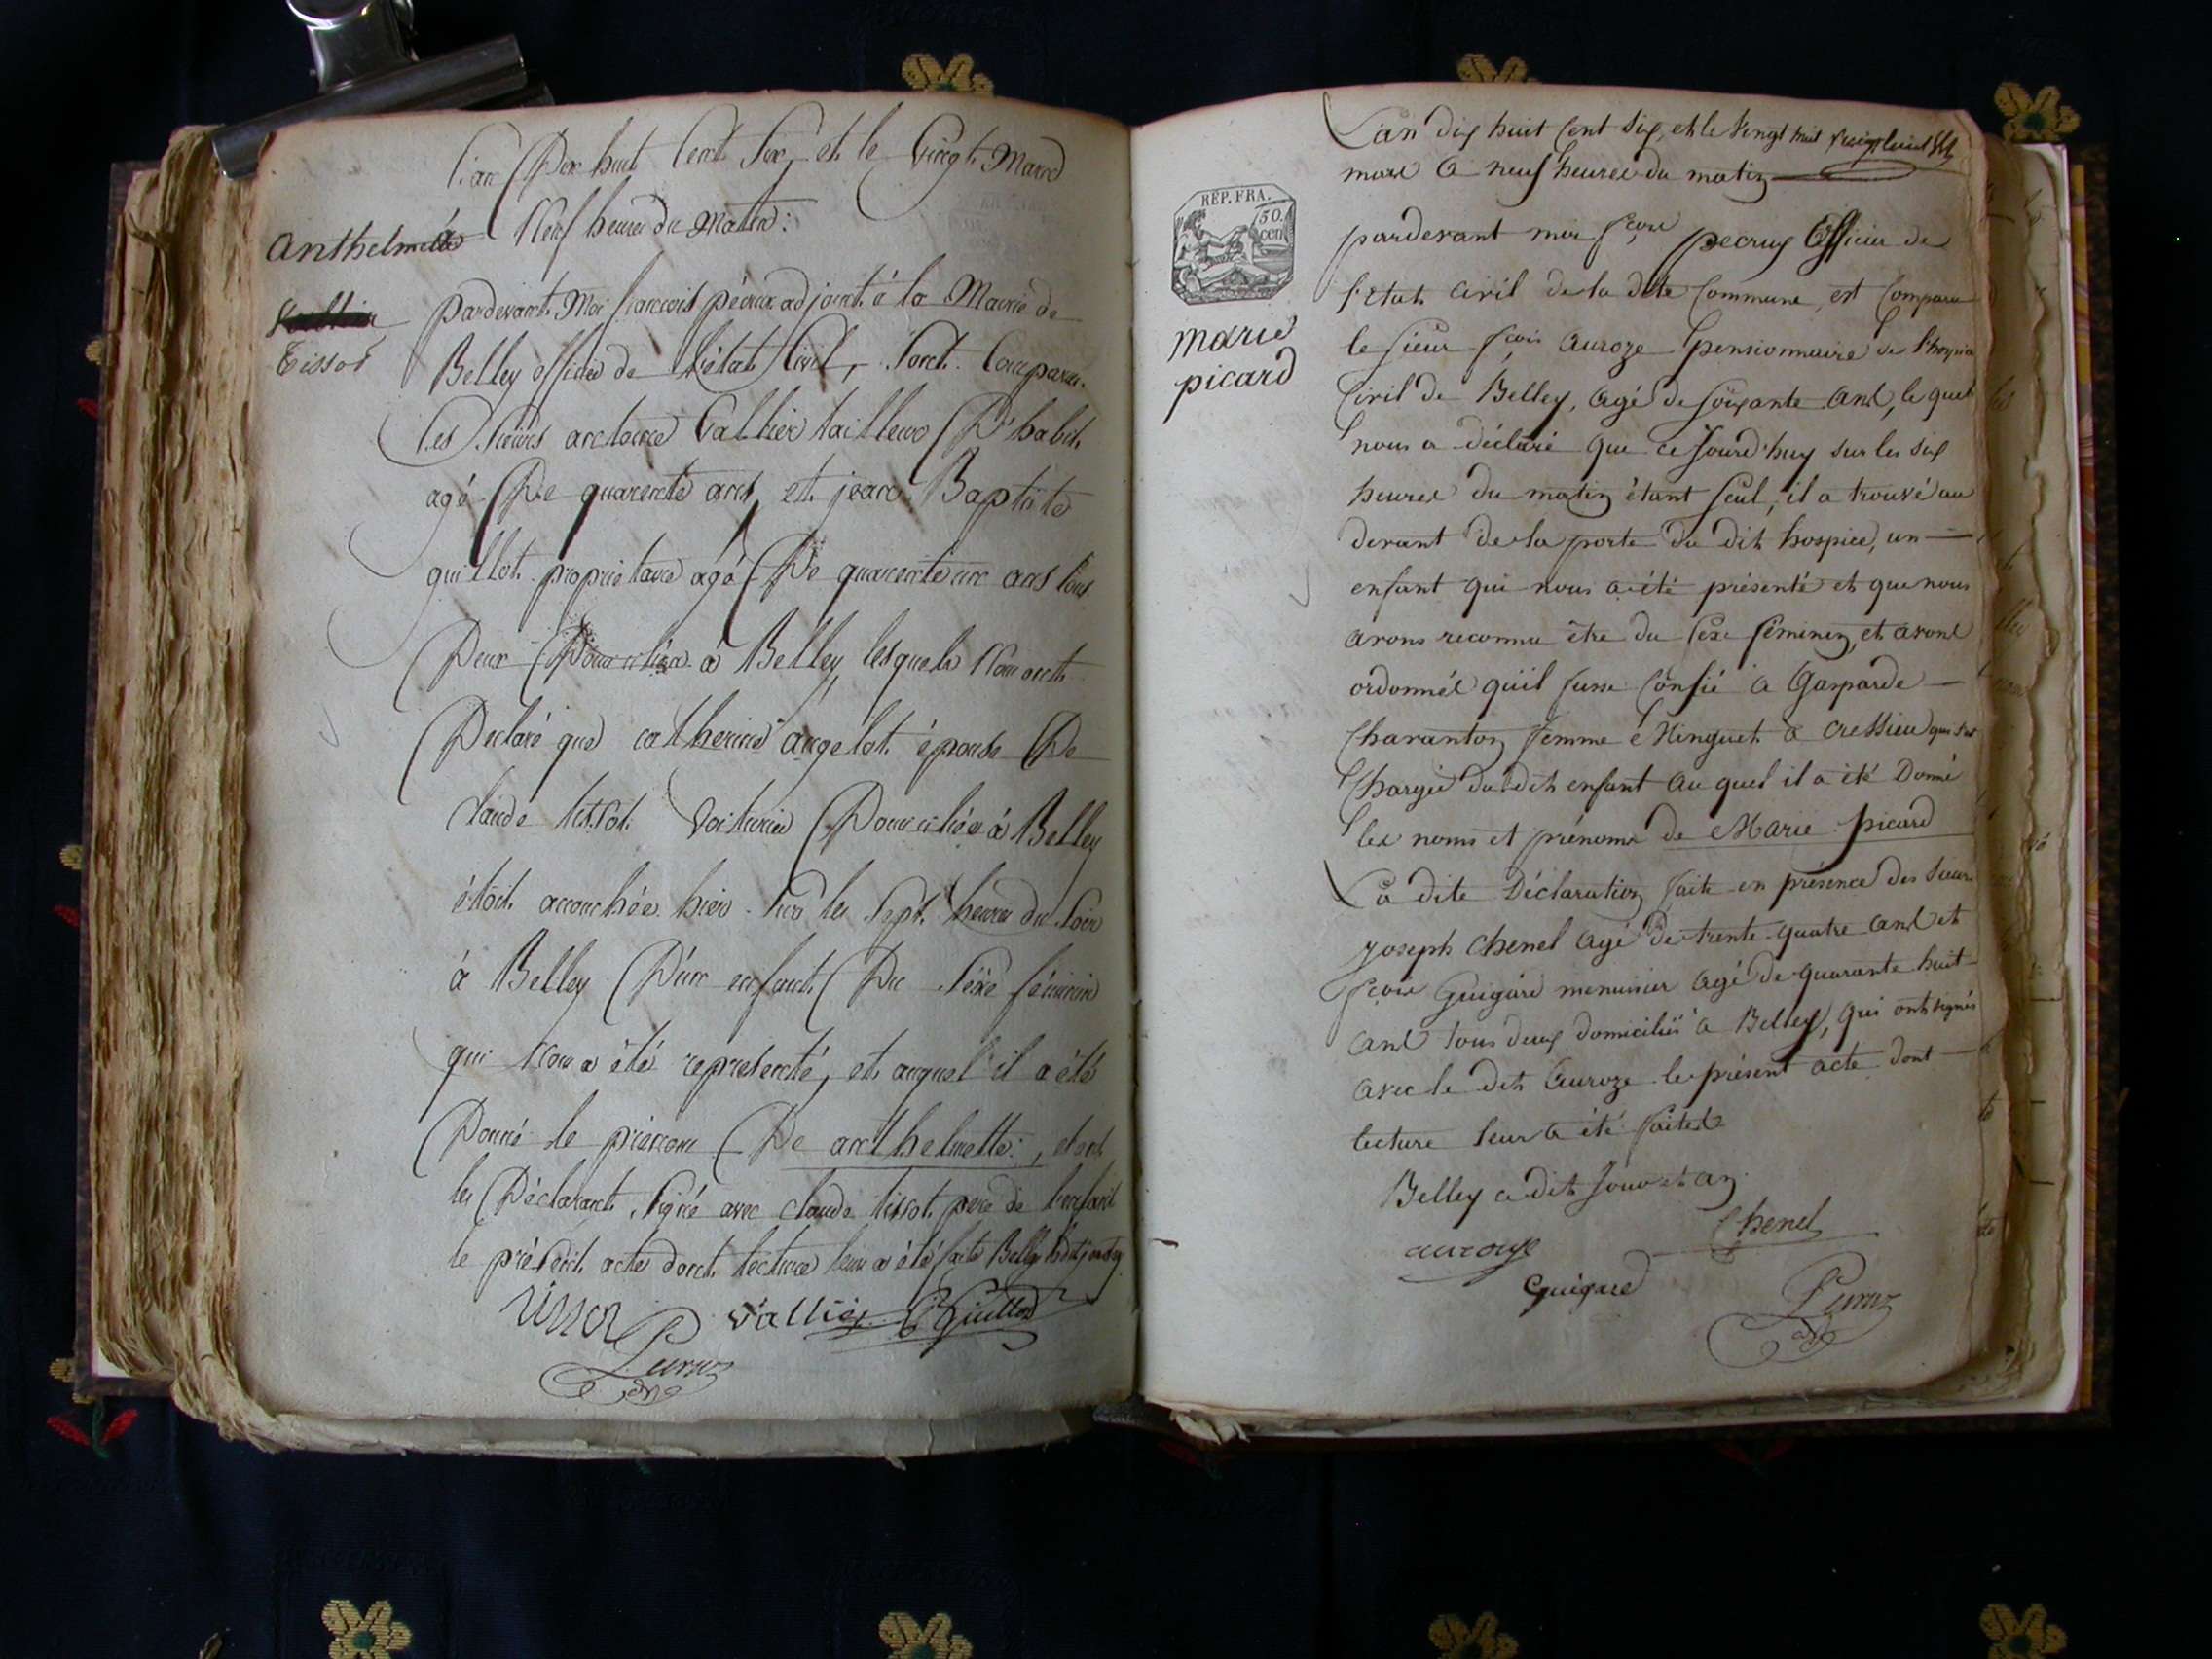 L'an Dix huit Cent Six, et le Vingt Mars
à Neuf heures du Matin:
Anthelmette
Tissot
Pardevant Moi francois pécrux adjoint à la Mairie de
Belley officier de l'état Civil, Sont Comparu
Les Sieurs antoine Vallier tailleur D'habit
agé De quarente ans, et jean Baptiste
guillot proprietaire agé De quarente un ans tous
Deux Domiciliés à Belley lesquels Nous ont
Declaré que catherine angelot épouse De
claude tissot Voiturier Domiciliés à Belley
étoit accouchée hier sur les sept heures du Soir
à Belley D'un enfant Du Sexe féminin
qui Nous a été representé, et auquel il a été
Donné le prénom De anthelmette:, et ont
les Déclarant Signé avec claude tissot pere de l'enfant
le présent acte dont lecture leur a été faite Belley
Tissot Vallier Guillot
Pecrux
L'an dix huit Cent Six, et le Vingt huit
mars a neuf heures du matin
RÉP. FRA.
50.
cen
marie
picard
pardevant moi fçois pecrux Officier de
l'etat civil de la dite Commune, est Comparu
le sieur fçois auroze pensionnaire de l'hospice
Civil de Belley, agé de soixante ans, le quel
nous a déclaré que ce Jourd'huy sur les six
heures du matin étant seul, il a trouvé au
devant de la porte du dit hospice, un
enfant qui nous a été présenté et que nous
avons reconnu être du sexe féminin, et avons
ordonnés qu'il fusse Confié à Gasparde
Charanton femme Minguet a cressieu qui s'est
Chargée du dit enfant au quel il a été Donné
les noms et prénoms de Marie picard
La dite Déclaration faite en présence des sieurs
joseph chenel agé de trente quatre ans et
fçois Guigard menuisier agé de quarante huit
ans tous deux domiciliés a Belley, qui ont signés
avec le dit auroze le présent acte dont
lecture leur a été faite
Belley a dit Jour et an.
auroze Chenel
Guigard
Pecrux